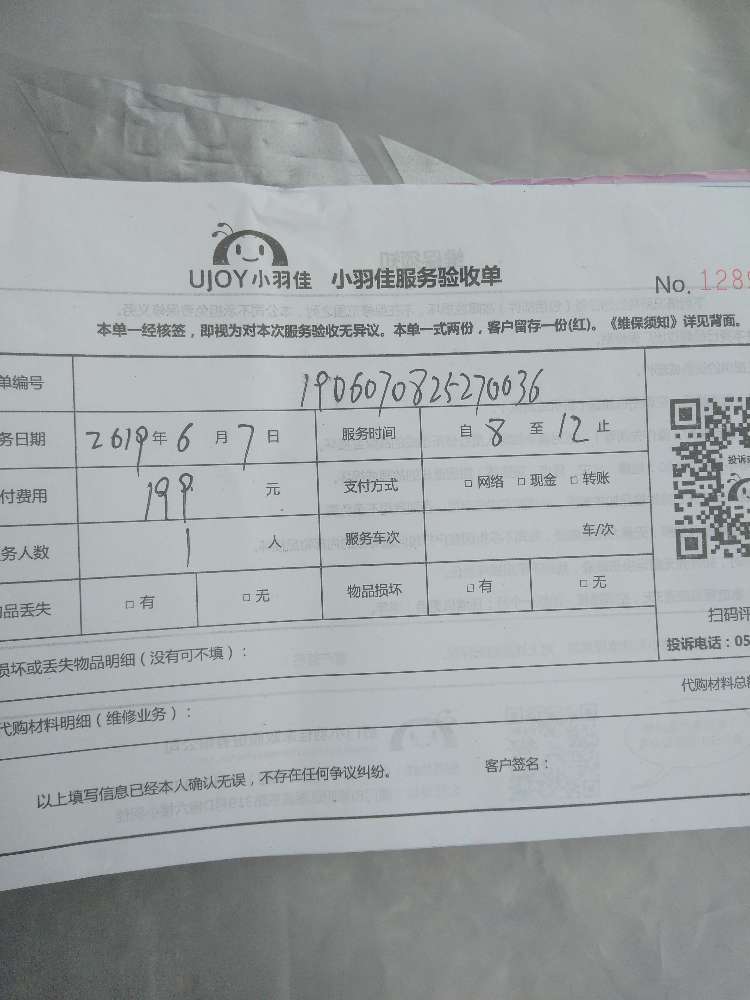 UJOY小羽佳 小羽佳服务验收单
No. 1289
本单一经核签，即视为对本次服务验收无异议。本单一式两份，客户留存一份(红)。《维保须知》详见背面。
单编号 1906070825270036
务日期 2019年6月7日 服务时间 自8至12止
付费用 199元 支付方式 □网络 □现金 □转账
务人数 1人 服务车次 车/次
品丢失 □有 □无 物品损坏 □有 □无
投诉
扫码评
投诉电话：05
损坏或丢失物品明细（没有可不填）：
代购材料总额
代购材料明细（维修业务）：
以上填写信息已经本人确认无误，不存在任何争议纠纷。 客户签名：